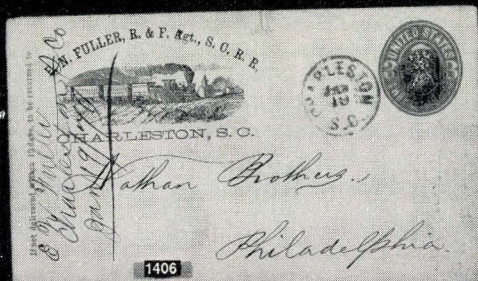 E. N. FULLER, R. & F. Agt., S. C. R. R.
CHARLESTON, S. C.
CHARLESTON
JAN
19
S.C.
UNITED STATES
If not delivered within 10 days, to be returned to
E N Fuller
Charleston S Co
Jan 19/
Nathan Brothers,
Philadelphia.
1406